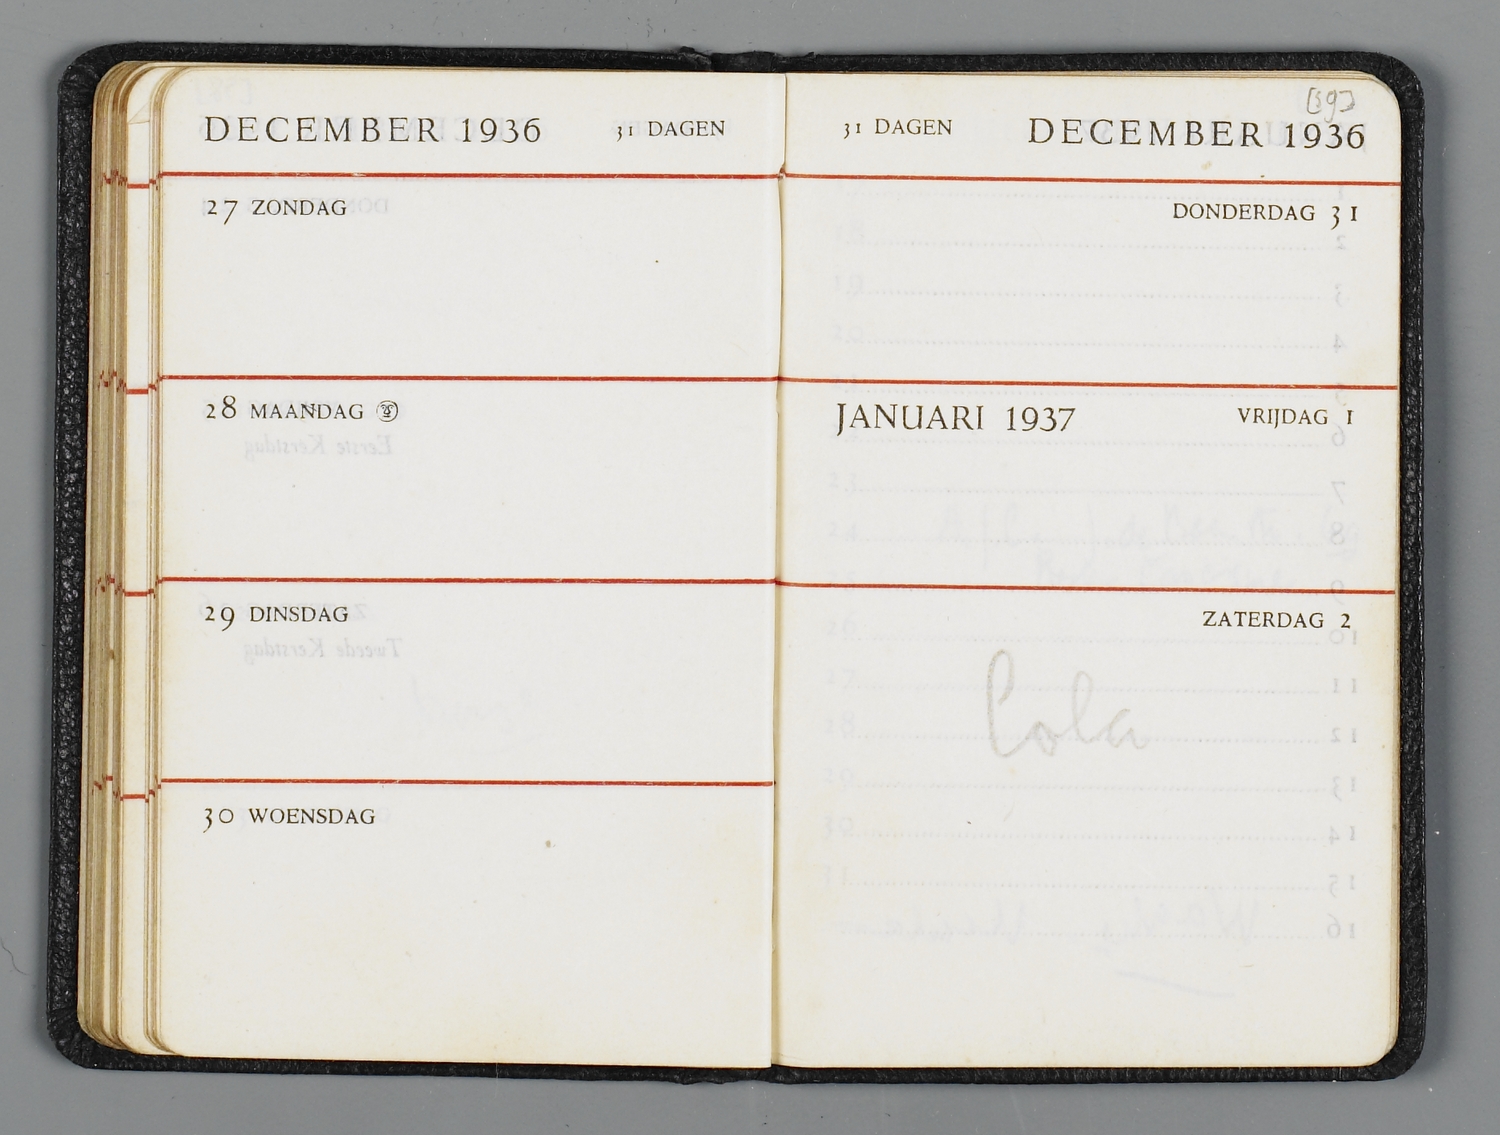 DECEMBER 1936 31 DAGEN
27 ZONDAG
28 MAANDAG
29 DINSDAG
30 WOENSDAG
[59]
31 DAGEN DECEMBER 1936
DONDERDAG 31
JANUARI 1937 VRIJDAG 1
ZATERDAG 2
Cola